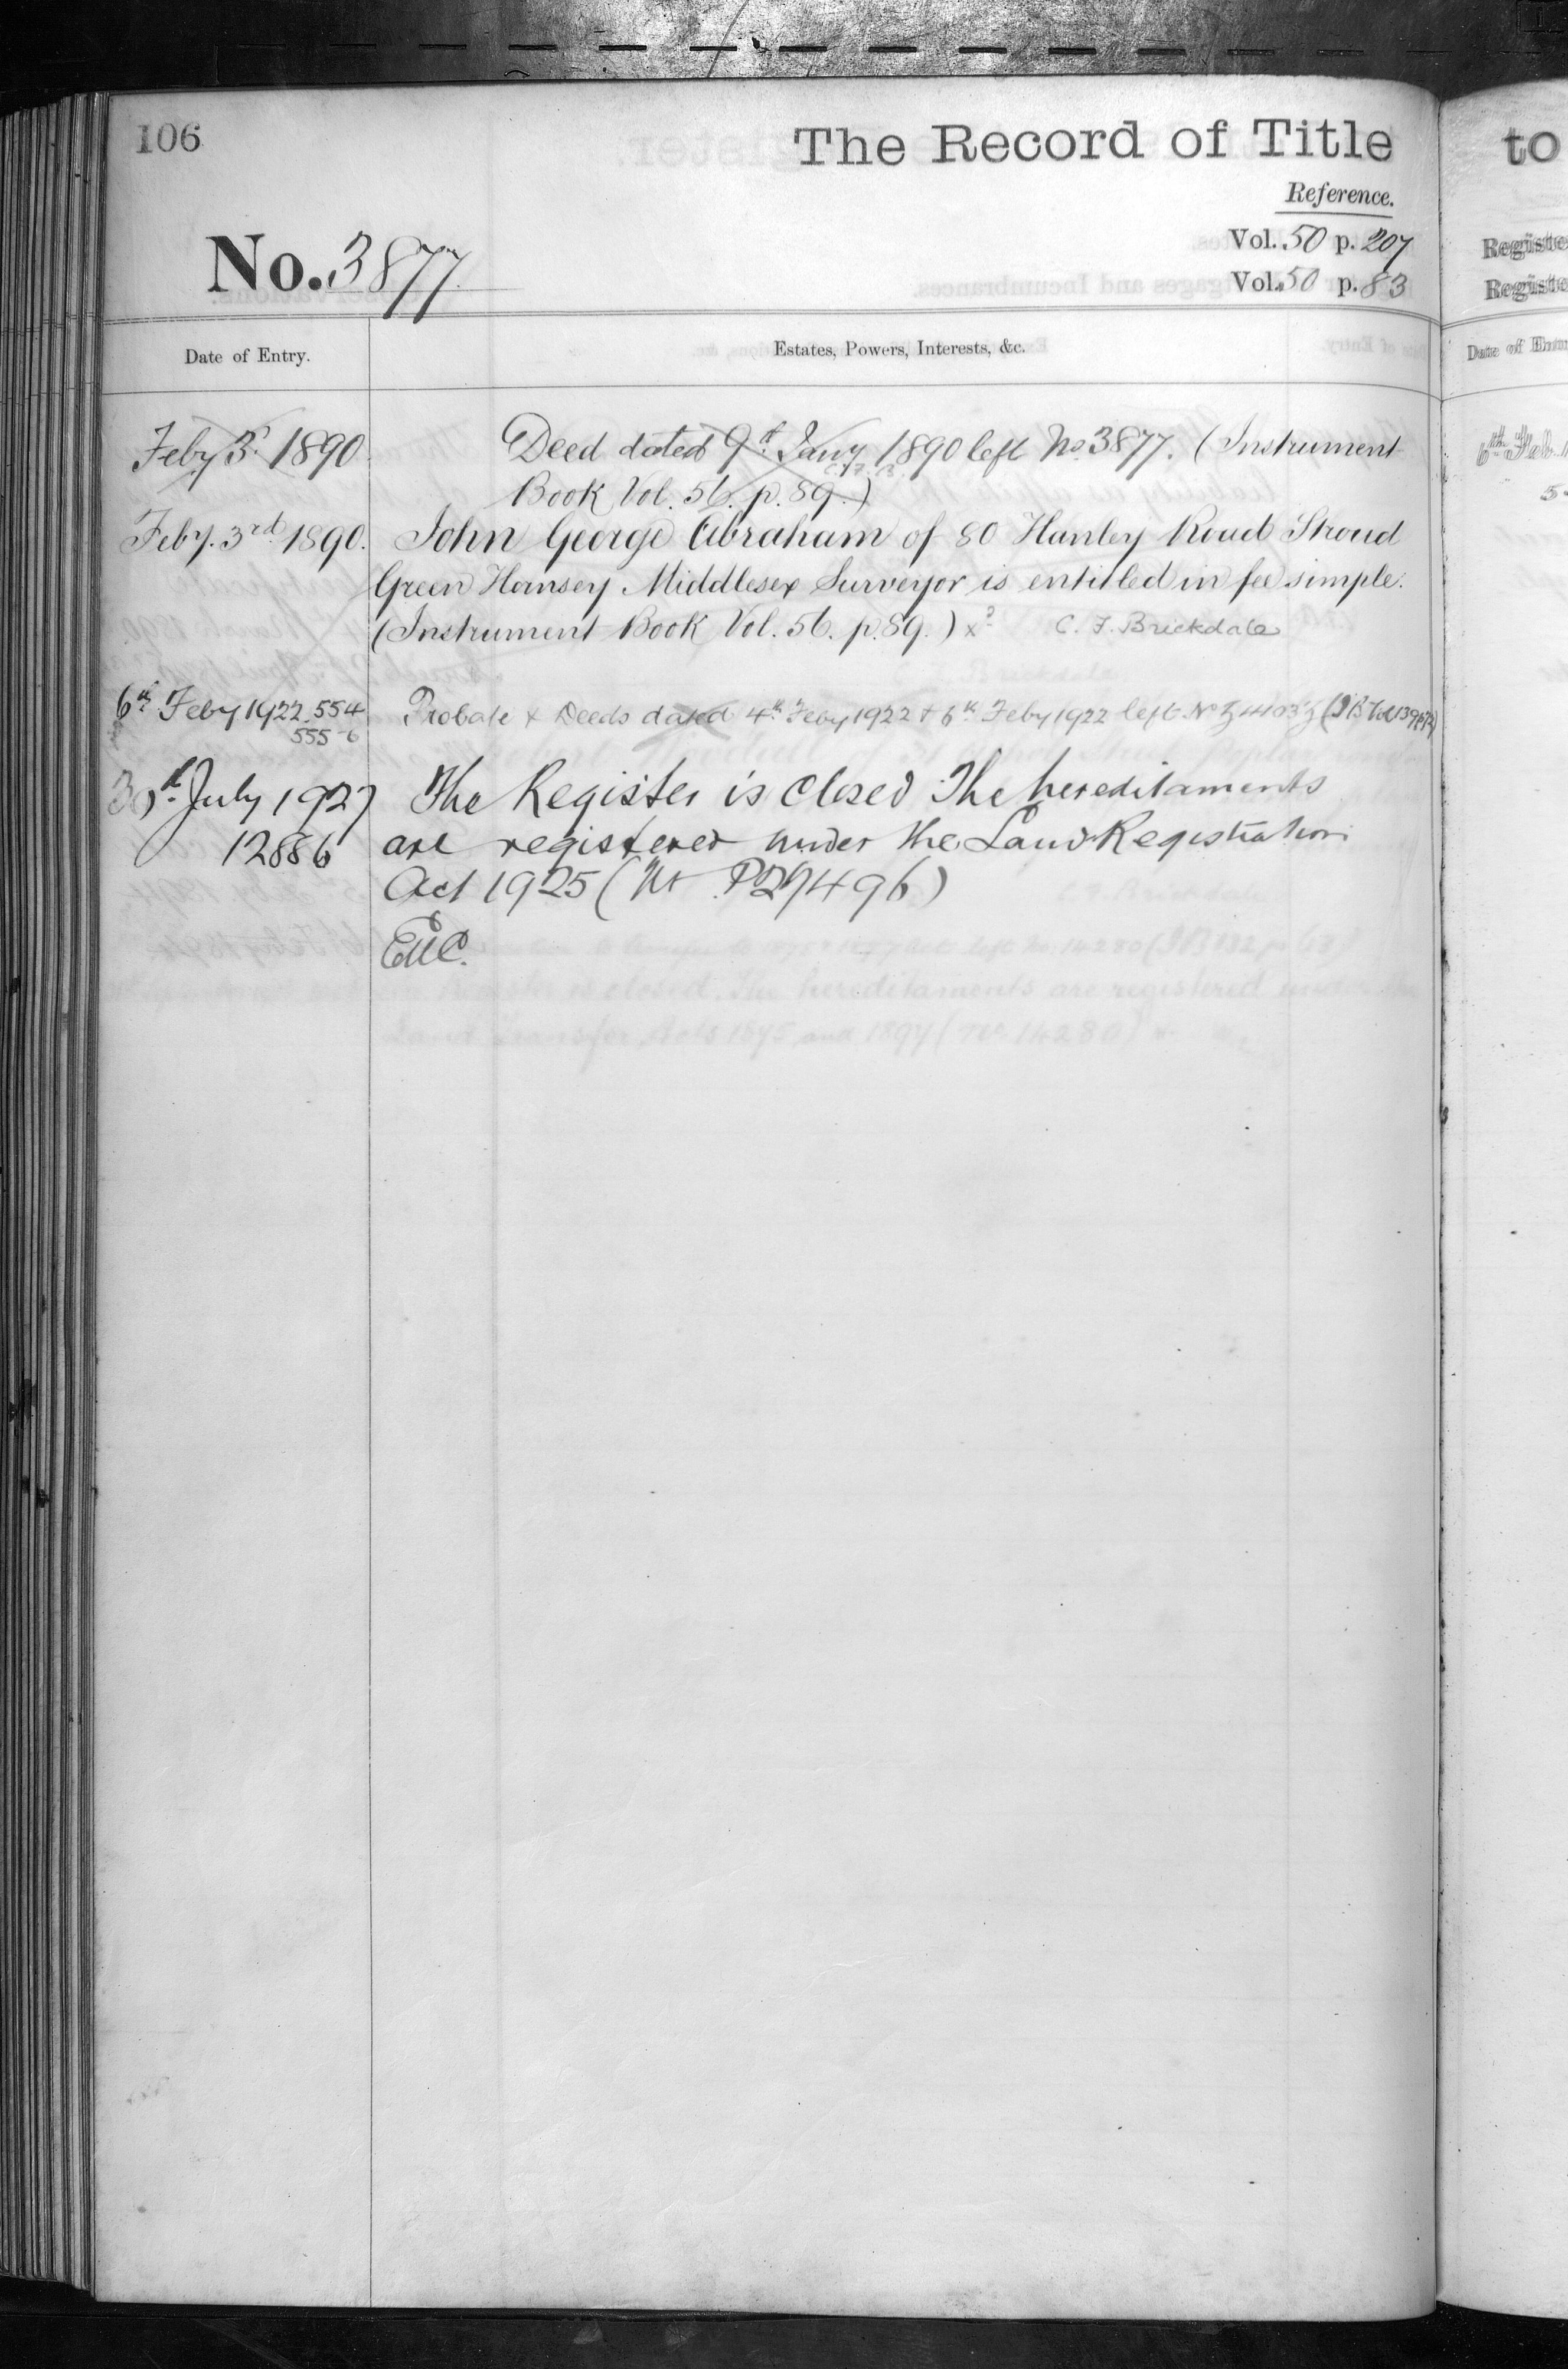 106
The Record of Title
Reference.
No. 3877
Vol. 50 p. 207
Vol. 50 p. 83
Date of Entry.
Estates, Powers, Interests, &c.
Feby 3rd 1890
Deed dated 9th Jany 1890 left No 3877. (Instrument
C.F.B.
Book Vol. 56. p. 89.)
Feby. 3rd 1890.
John George Abraham of 80 Hanley Road Stroud
Green Hornsey Middlesex Surveyor is entitled in fee simple.
(Instrument Book Vol. 56. p. 89.) x
C. F. Brickdale
6th Feby 1922 554
555-6
Probate & Deeds dated 4th Feby 1922 & 6th Feby 1922 left No
30th July 1927
12886
The Register is closed The hereditaments
are registered under the Land Registration
Act 1925 (No P27496)
to
Registe
Registe
Date of
6th Feb